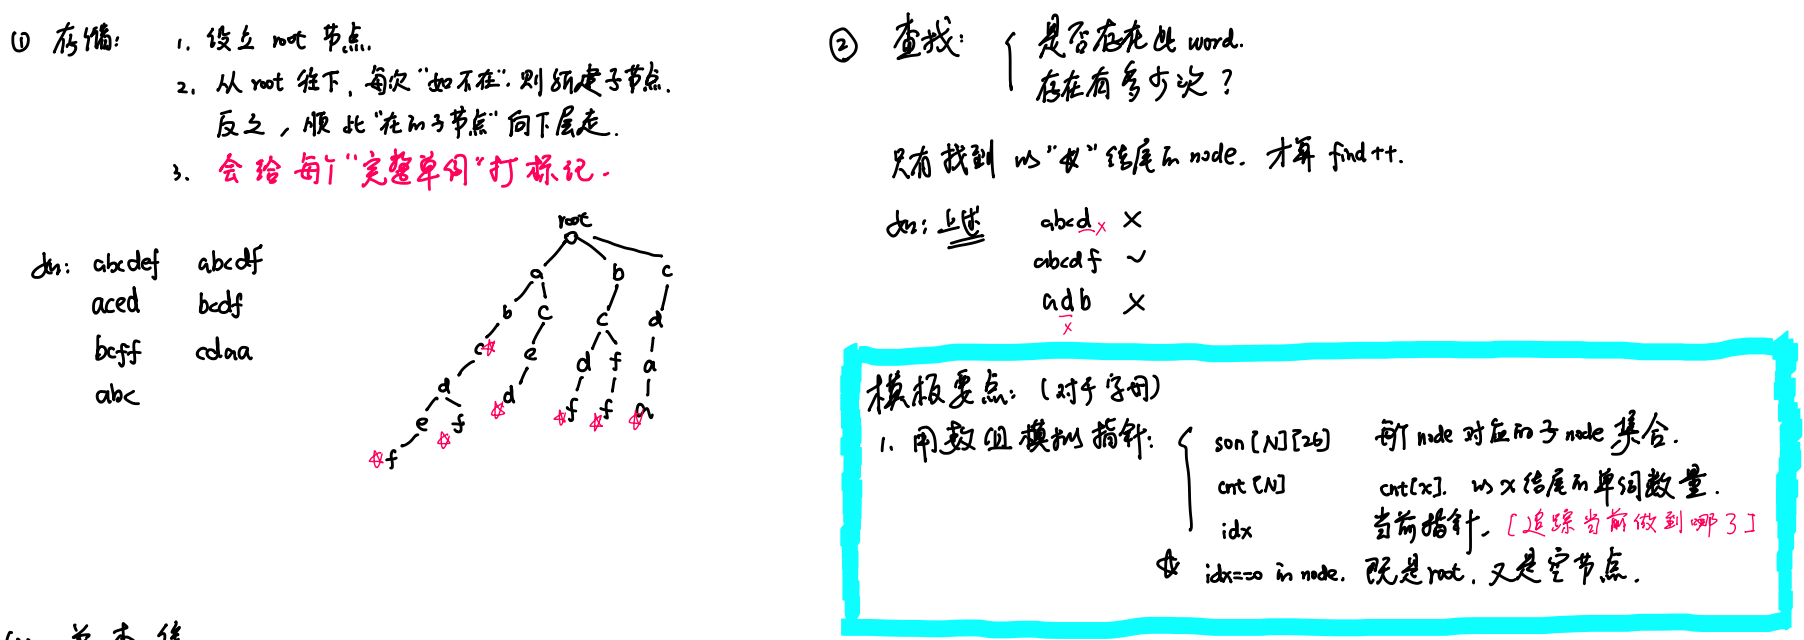 ① 存储: 1. 设立 root 节点.
2. 从 root 往下, 每次"如不在", 则新建子节点.
反之, 顺此"在的子节点"向下层走.
3. 会给每个"完整单词"打标记.
如: abcdef abcdf
aced bcdf
bcff cdaa
abc
root
a b c
b c c d
c☆ e d f a
d d f f a
e f
f
② 查找: { 是否存在此 word.
存在有多少次?
只有找到以"☆"结尾的 node. 才算 find++.
如: 上述 abcd × ×
abcdf ✓
adb ×
×
模板要点: (对于字母)
1. 用数组模拟指针: { son[N][26] 每个 node 对应的子 node 集合.
cnt[N] cnt[x]. 以 x 结尾的单词数量.
idx 当前指针. [追踪当前做到哪了]
☆ idx==0 in node. 既是 root, 又是空节点.